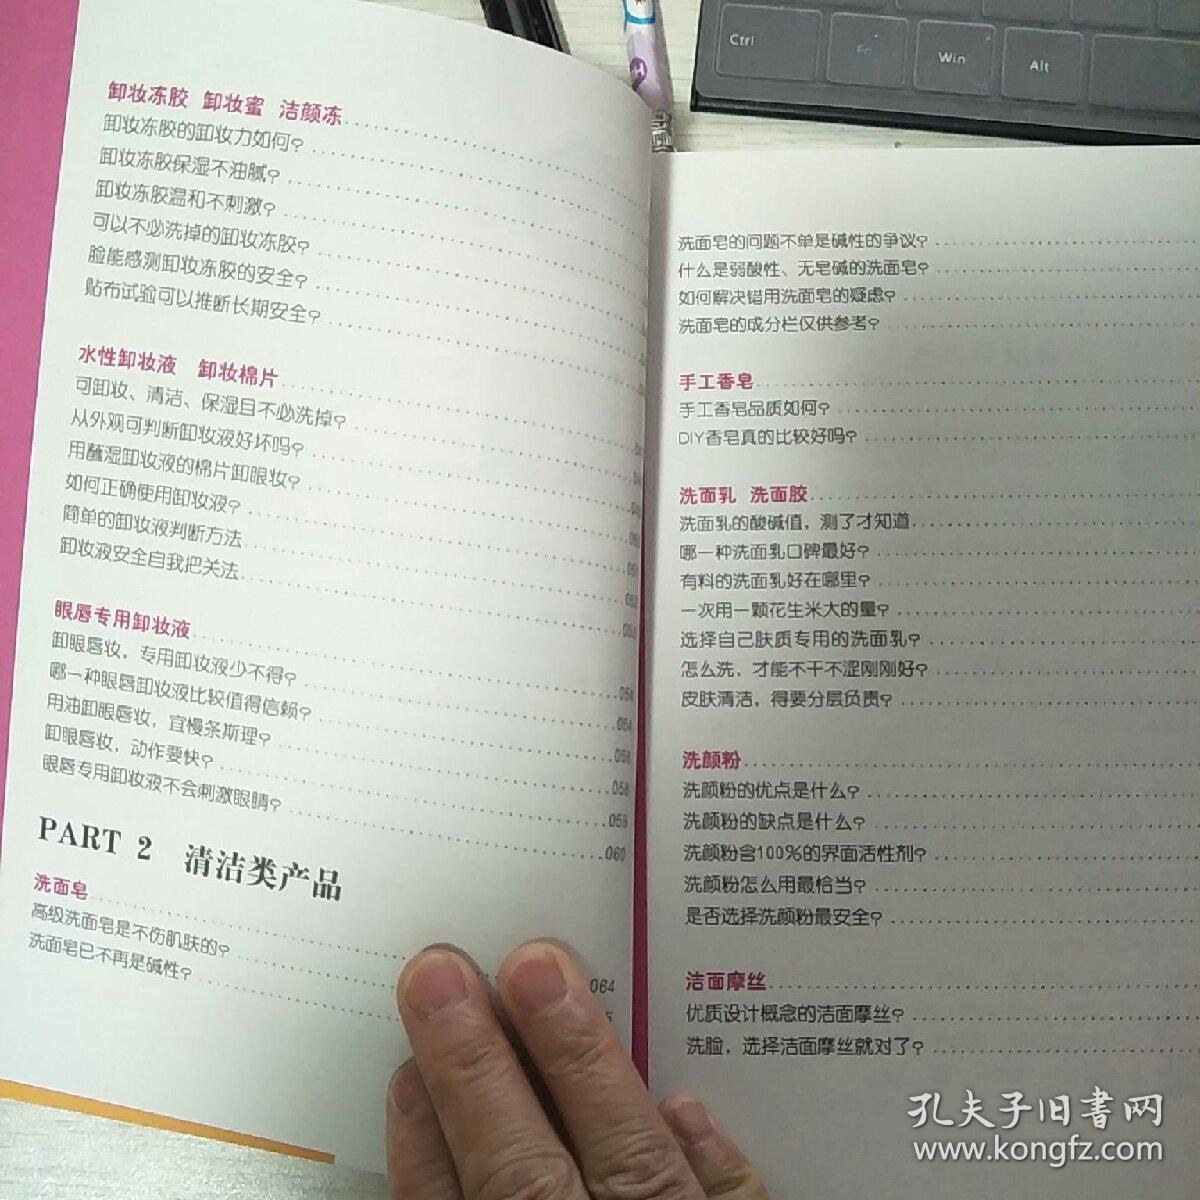 卸妆冻胶 卸妆蜜 洁颜冻
卸妆冻胶的卸妆力如何?
卸妆冻胶保湿不油腻?
卸妆冻胶温和不刺激?
可以不必洗掉的卸妆冻胶?
脸能感测卸妆冻胶的安全?
贴布试验可以推断长期安全?
水性卸妆液 卸妆棉片
可卸妆、清洁、保湿且不必洗掉?
从外观可判断卸妆液好坏吗?
用蘸湿卸妆液的棉片卸眼妆?
如何正确使用卸妆液?
简单的卸妆液判断方法
卸妆液安全自我把关法
眼唇专用卸妆液
卸眼唇妆，专用卸妆液少不得? 054
哪一种眼唇卸妆液比较值得信赖? 054
用油卸眼唇妆，宜慢条斯理? 056
卸眼唇妆，动作要快? 058
眼唇专用卸妆液不会刺激眼睛? 059
060
PART 2 清洁类产品
洗面皂
高级洗面皂是不伤肌肤的? 064
洗面皂已不再是碱性?
洗面皂的问题不单是碱性的争议?
什么是弱酸性、无皂碱的洗面皂?
如何解决错用洗面皂的疑虑?
洗面皂的成分栏仅供参考?
手工香皂
手工香皂品质如何?
DIY香皂真的比较好吗?
洗面乳 洗面胶
洗面乳的酸碱值，测了才知道
哪一种洗面乳口碑最好?
有料的洗面乳好在哪里?
一次用一颗花生米大的量?
选择自己肤质专用的洗面乳?
怎么洗，才能不干不涩刚刚好?
皮肤清洁，得要分层负责?
洗颜粉
洗颜粉的优点是什么?
洗颜粉的缺点是什么?
洗颜粉含100%的界面活性剂?
洗颜粉怎么用最恰当?
是否选择洗颜粉最安全?
洁面摩丝
优质设计概念的洁面摩丝?
洗脸，选择洁面摩丝就对了?
Ctrl
Fn
Win
Alt
孔夫子旧书网
www.kongfz.com